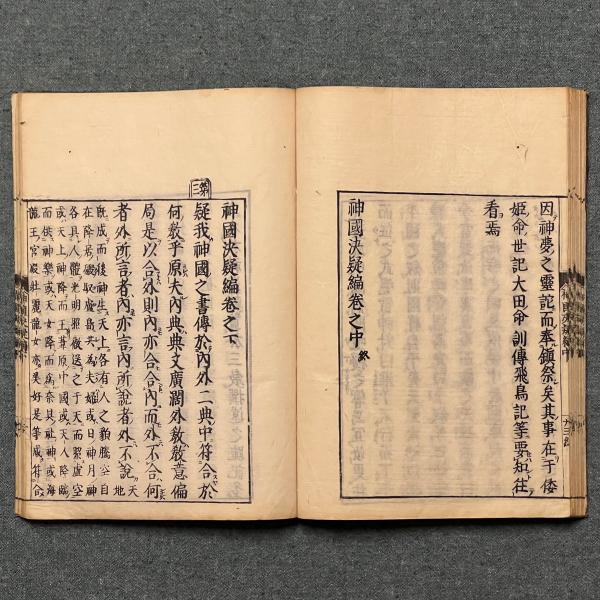 因神夢之靈託而奉鎭祭矣其事在于倭
姬命世記大田命訓傳飛鳥記等要知往
看焉
神國決疑編卷之中 終
神國決疑編卷之下
第三
疑我神國之書傳於內外二典中符合於
何教乎原夫內典典文廣濶外教教意偏
局是以合外則內亦合合內而外不合何
者外所言者內亦言內所說者外不說 天地
既成而後神生 天上各有人之 騰空自
在降居 嶋為夫婦或日神月神
各具人體光明照徹送之于天而絮虛空
或天上神降而王葦原中國或天人降臨
而供神樂或天女降而為奈其社神或海
龍王宮殿壯麗龍女 美好是等咸符合